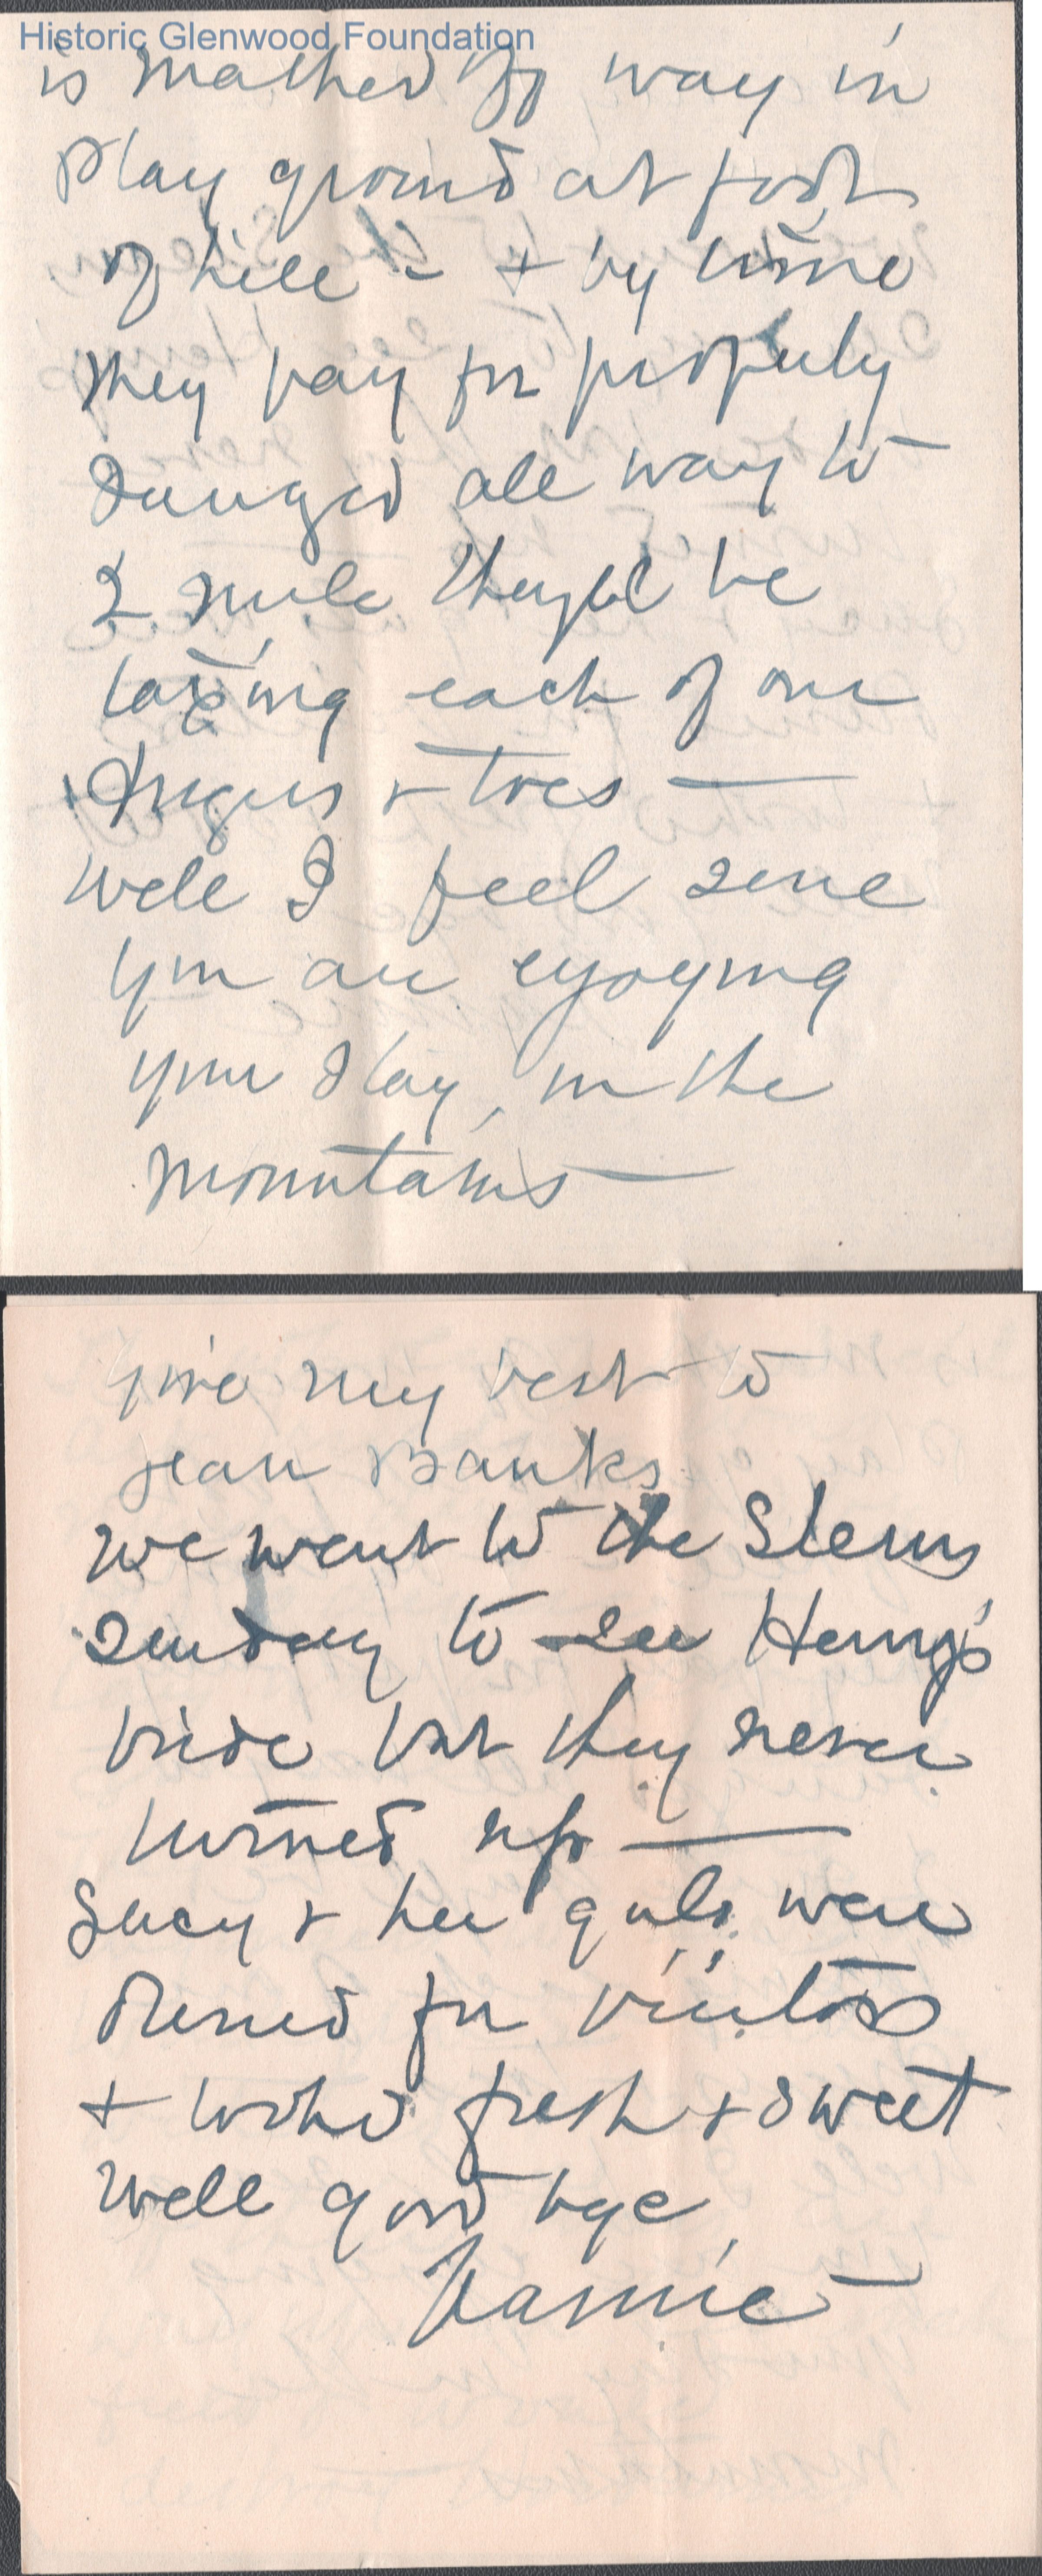 Historic Glenwood Foundation
is mashed of way in
play ground at foot
of hill - + by time
they pay for property
damaged all way to
2 mile they'll be
taxing each of our
fingers + toes —
Well I feel sure
you are enjoying
your stay in the
mountains —
give my best to
Jean Banks
we went to the Sterns
Sunday to see Henry's
bride but they never
turned up —
Lucy + her girls were
dressed for visitors
+ looked fresh + sweet
Well good bye
Nannie —